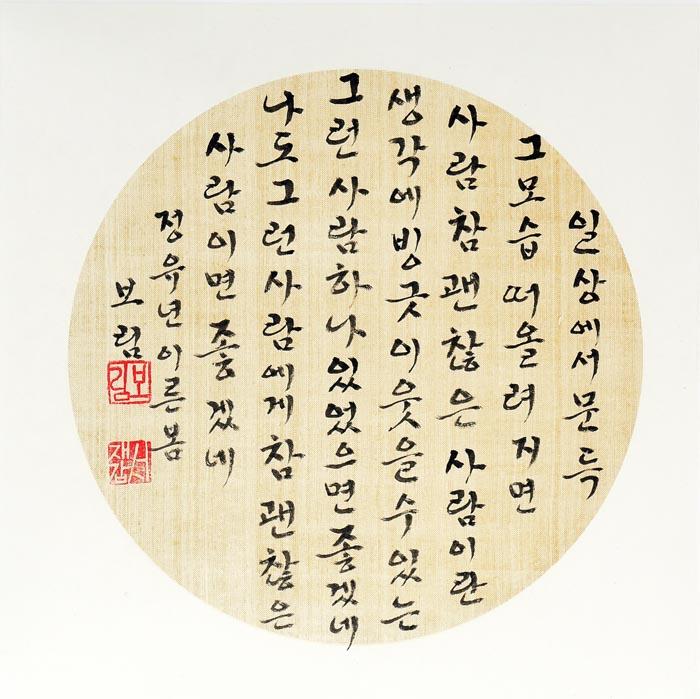 일상에서문득
그모습떠올려지면
사람참괜찮은사람이란
생각에빙긋이웃을수있는
그런사람하나있었으면좋겠네
나도그런사람에게참괜찮은
사람이면좋겠네
정유년이른봄
보림